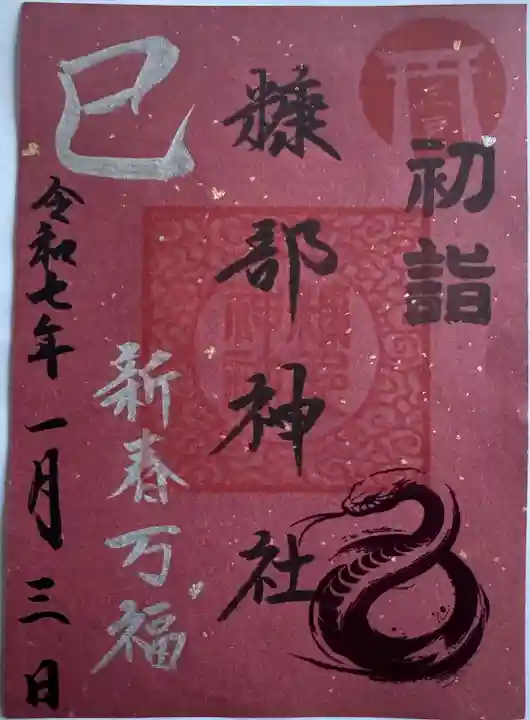 初詣
糠部神社
新春万福
巳
令和七年一月三日